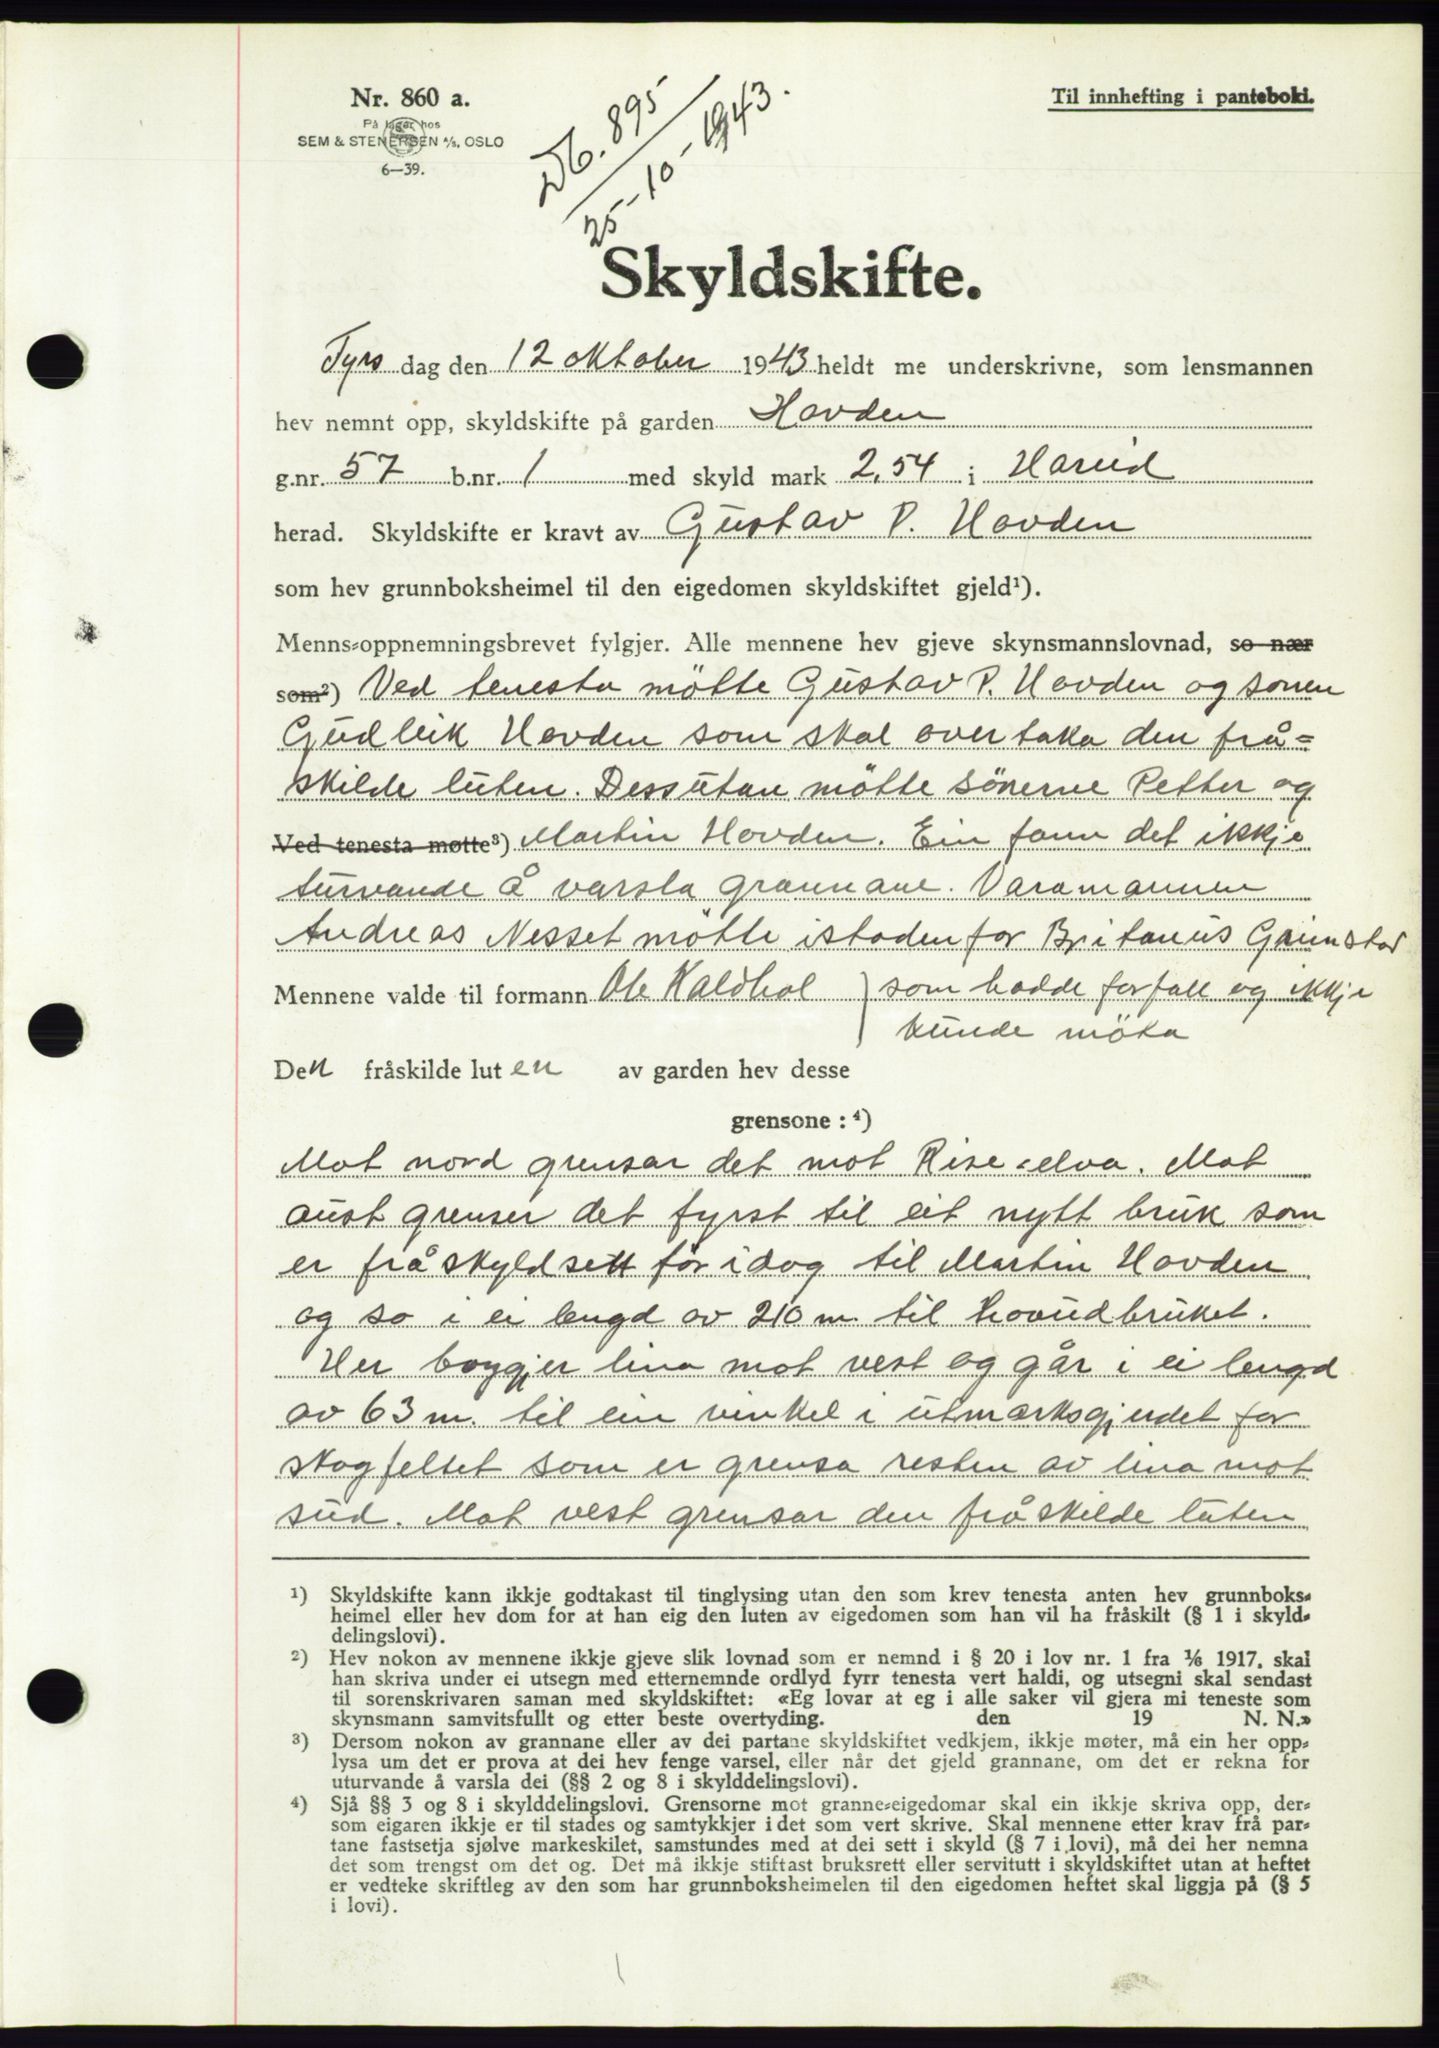 Nr. 860 a.
På lager hos
SEM & STENERSEN A/S, OSLO
6—39.
Til innhefting i panteboki.
Db. 895
25-10-1943.
Skyldskifte.
Tyrs dag den 12 oktober 1943 heldt me underskrivne, som lensmannen
hev nemnt opp, skyldskifte på garden Hovden
g.nr. 57 b.nr. 1 med skyld mark 2,54 i Hareid
herad. Skyldskifte er kravt av Gustav P. Hovden
som hev grunnboksheimel til den eigedomen skyldskiftet gjeld¹).
Menns-oppnemningsbrevet fylgjer. Alle mennene hev gjeve skynsmannslovnad, so nær
som²) Ved tenesta mötte Gustav P. Hovden og sonen
Gudleik Hovden som skal overtaka den frå=
skilde luten. Dessutan mötte sönerne Petter og
Ved tenesta møtte³) Martin Hovden. Ein fann det ikkje
turvande å varsla grannane. Varamannen
Andreas Nesset mötte istaden for Britanius Grimstad
Mennene valde til formann Ole Kaldhol ) som hadde forfall og ikkje
kunde möta
Den fråskilde luten av garden hev desse
grensone : ⁴)
Mot nord grensar det mot Rise-elva. Mot
aust grenser det fyrst til eit nytt bruk som
er fråskyldsett för idag til Martin Hovden
og so i ei lengd av 210 m. til hovudbruket.
Her boygjer lina mot vest og går i ei lengd
av 63 m. til ein vinkel i utmarksgjerdet for
skogfeltet som er grensa resten av lina mot
sud. Mot vest grensar den fråskilde luten
¹) Skyldskifte kann ikkje godtakast til tinglysing utan den som krev tenesta anten hev grunnboks-
heimel eller hev dom for at han eig den luten av eigedomen som han vil ha fråskilt (§ 1 i skyld-
delingslovi).
²) Hev nokon av mennene ikkje gjeve slik lovnad som er nemnd i § 20 i lov nr. 1 fra 1/6 1917, skal
han skriva under ei utsegn med etternemnde ordlyd fyrr tenesta vert haldi, og utsegni skal sendast
til sorenskrivaren saman med skyldskiftet: «Eg lovar at eg i alle saker vil gjera mi teneste som
skynsmann samvitsfullt og etter beste overtyding. den 19 N. N.»
³) Dersom nokon av grannane eller av dei partane skyldskiftet vedkjem, ikkje møter, må ein her opp-
lysa um det er prova at dei hev fenge varsel, eller når det gjeld grannane, om det er rekna for
uturvande å varsla dei (§§ 2 og 8 i skylddelingslovi).
⁴) Sjå §§ 3 og 8 i skylddelingslovi. Grensorne mot granne-eigedomar skal ein ikkje skriva opp, der-
som eigaren ikkje er til stades og samtykkjer i det som vert skrive. Skal mennene etter krav frå par-
tane fastsetja sjølve markeskilet, samstundes med at dei sett i skyld (§ 7 i lovi), må dei her nemna
det som trengst om det og. Det må ikkje stiftast bruksrett eller servitutt i skyldskiftet utan at heftet
er vedteke skriftleg av den som har grunnboksheimelen til den eigedomen heftet skal liggja på (§ 5
i lovi).